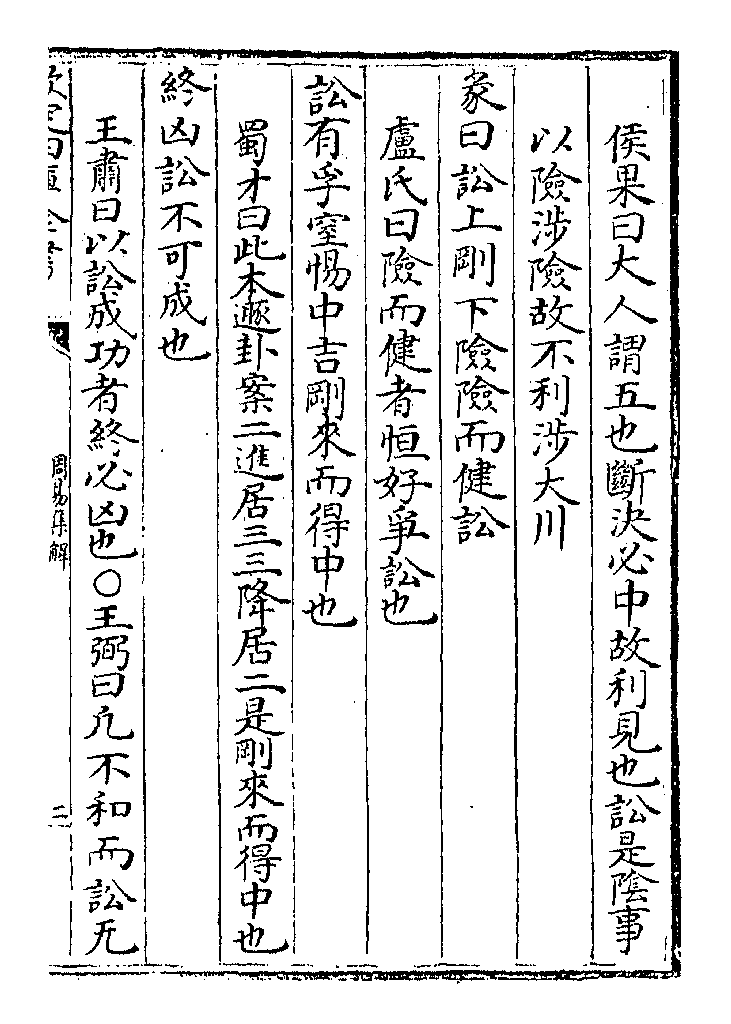 侯果曰大人謂五也斷決必中故利見也訟是隂事
以險涉險故不利涉大川
彖曰訟上剛下險險而健訟
盧氏曰險而健者恒好爭訟也
訟有孚窒惕中吉剛來而得中也
蜀才曰此本遯卦案二進居三三降居二是剛來而得中也
終凶訟不可成也
王肅曰以訟成功者終必凶也○王弼曰凡不和而訟无
欽定四庫全書
周易集解
二